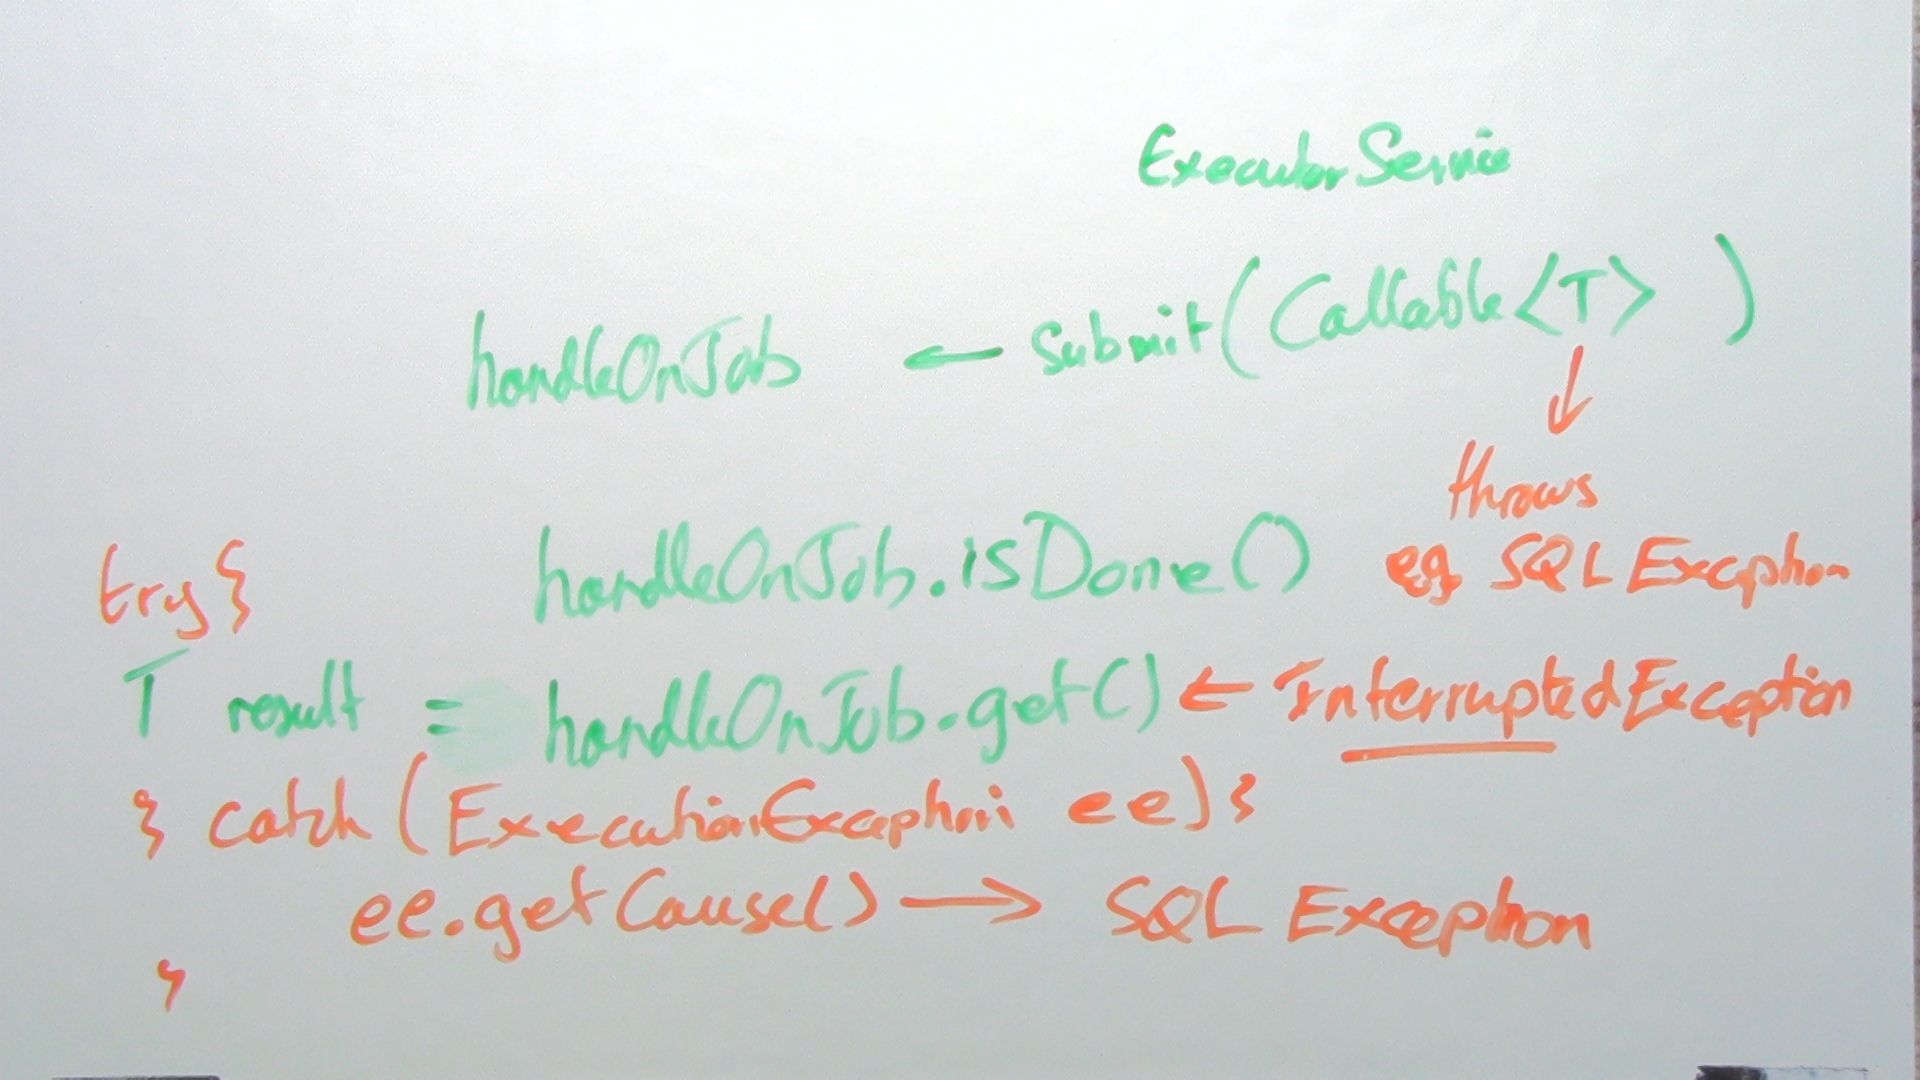 ExecutorService
handleOnJob ← submit(Callable<T> )
↓
throws
eg SQLException
handleOnJob.isDone()
try {
T result = handleOnJob.get() ← InterruptedException
} catch (ExecutionException ee) {
ee.getCause() → SQL Exception
}